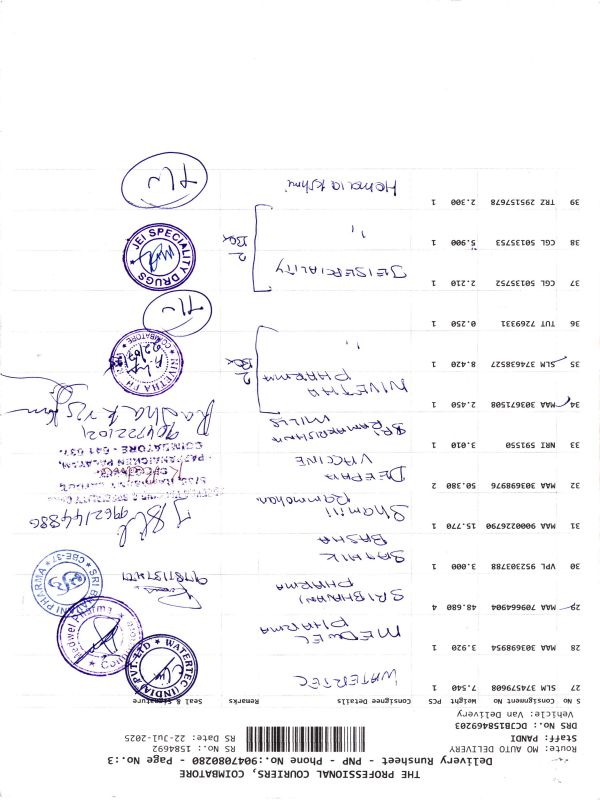 THE PROFESSIONAL COURIERS, COIMBATORE
Delivery Runsheet - PNP - Phone No.:9047080280 - Page No.:3
Route: MO AUTO DELIVERY RS No.: 1584692
Staff: PANDI RS Date: 22-Jul-2025
DRS No.: DCJB158469203
Vehicle: Van Delivery
S No Consignment No Weight PCS Consignee Details Remarks Seal & Signature
27 SLM 374579608 7.540 1 WATERTEC
WATERTEC (INDIA) PVT. LTD
28 MAA 303689954 3.920 1 MEDWEL PHARMA
Medwel Pharma
29 MAA 709664904 48.680 4 SRI BHAVANI PHARMA
SRI BHAVANI PHARMA CBE-37
30 VPL 952303788 3.000 1 SATHIK BASHA
9787137477
31 MAA 900026790 15.770 1 Shamili Rammohan
9962144886
32 MAA 303689976 50.380 2 DEEPAA VACCINE
PAPPANAICKEN PALAYAM,
COIMBATORE - 641 037.
33 NRI 591550 3.010 1 SRI RAMAKRISHNA MILLS
9047221021
34 MAA 303671508 2.450 1 NIVETHA PHARMA
2 Box
35 SLM 374638527 8.420 1 "
NIVETHA PH COIMBATORE
36 TUT 7269331 0.250 1
37 CGL 50135752 2.210 1 JEISPECIALITY
2 Box
38 CGL 50135753 5.900 1 "
JEI SPECIALITY DRUGS
39 TRZ 295157678 2.300 1 Hemalakshmi